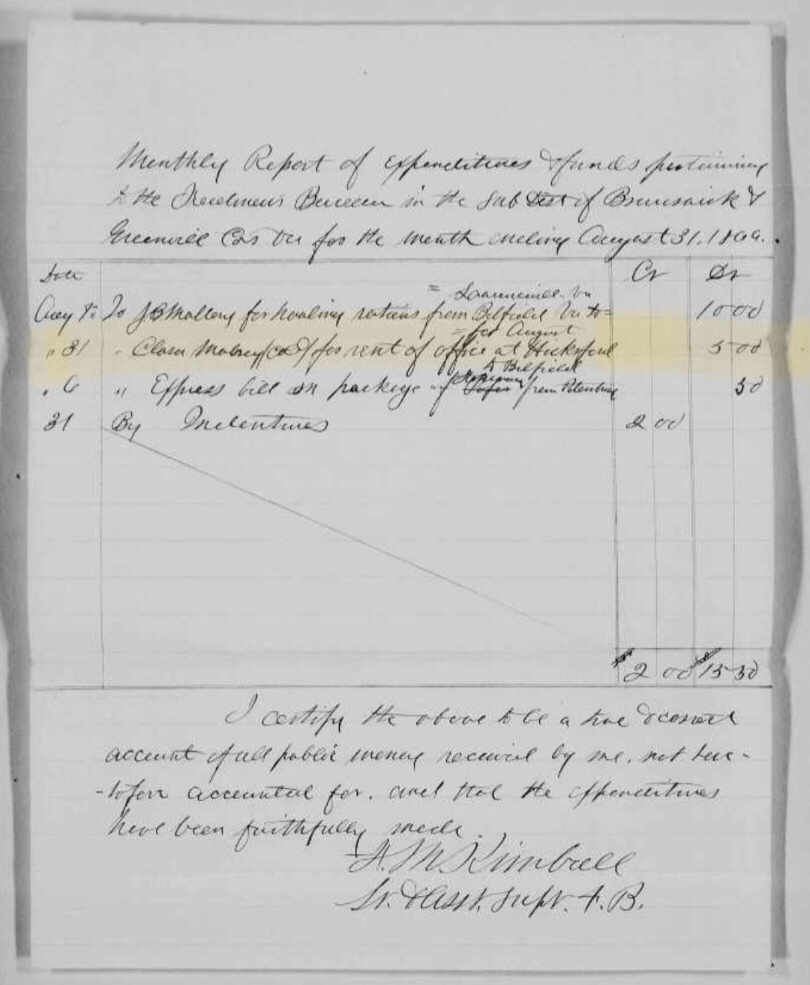 Monthly Report of Expenditures & funds pertaining
to the Freedmens Bureau in the Sub Dist of Brunswick &
Greenville Cos Va for the month ending August 31.
Date Cr Dr
= Lawrenceville Va
Aug To J B Mallory for hauling rations from Belfield Va to = 10 00
= for August
" 31 " Clara (cold) for rent of office at Hicksford 5 00
to Belfield
" 6 " Express bill on package of from Petersburg 50
31 By Indentures 2 00
$2 00 $15 50
I certify the above to be a true & correct
account of all public money received by me, not here-
-tofore accounted for, and that the expenditures
have been faithfully made.
Kimball
Lt. & Asst. Supt. F. B.